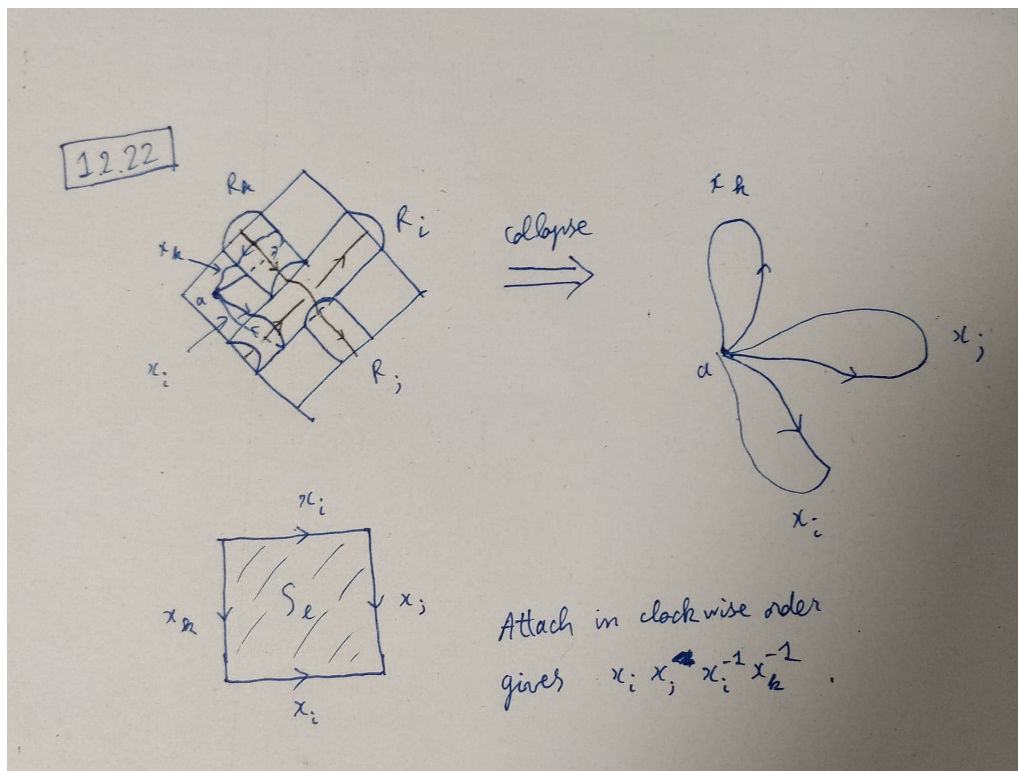 1.2.22
R_k
R_i
x_k
a
x_i
R_j
collapse
x_k
x_j
a
x_i
x_i
x_k
S_l
x_j
x_i
Attach in clockwise order
gives x_i x_j x_i^{-1} x_k^{-1} .